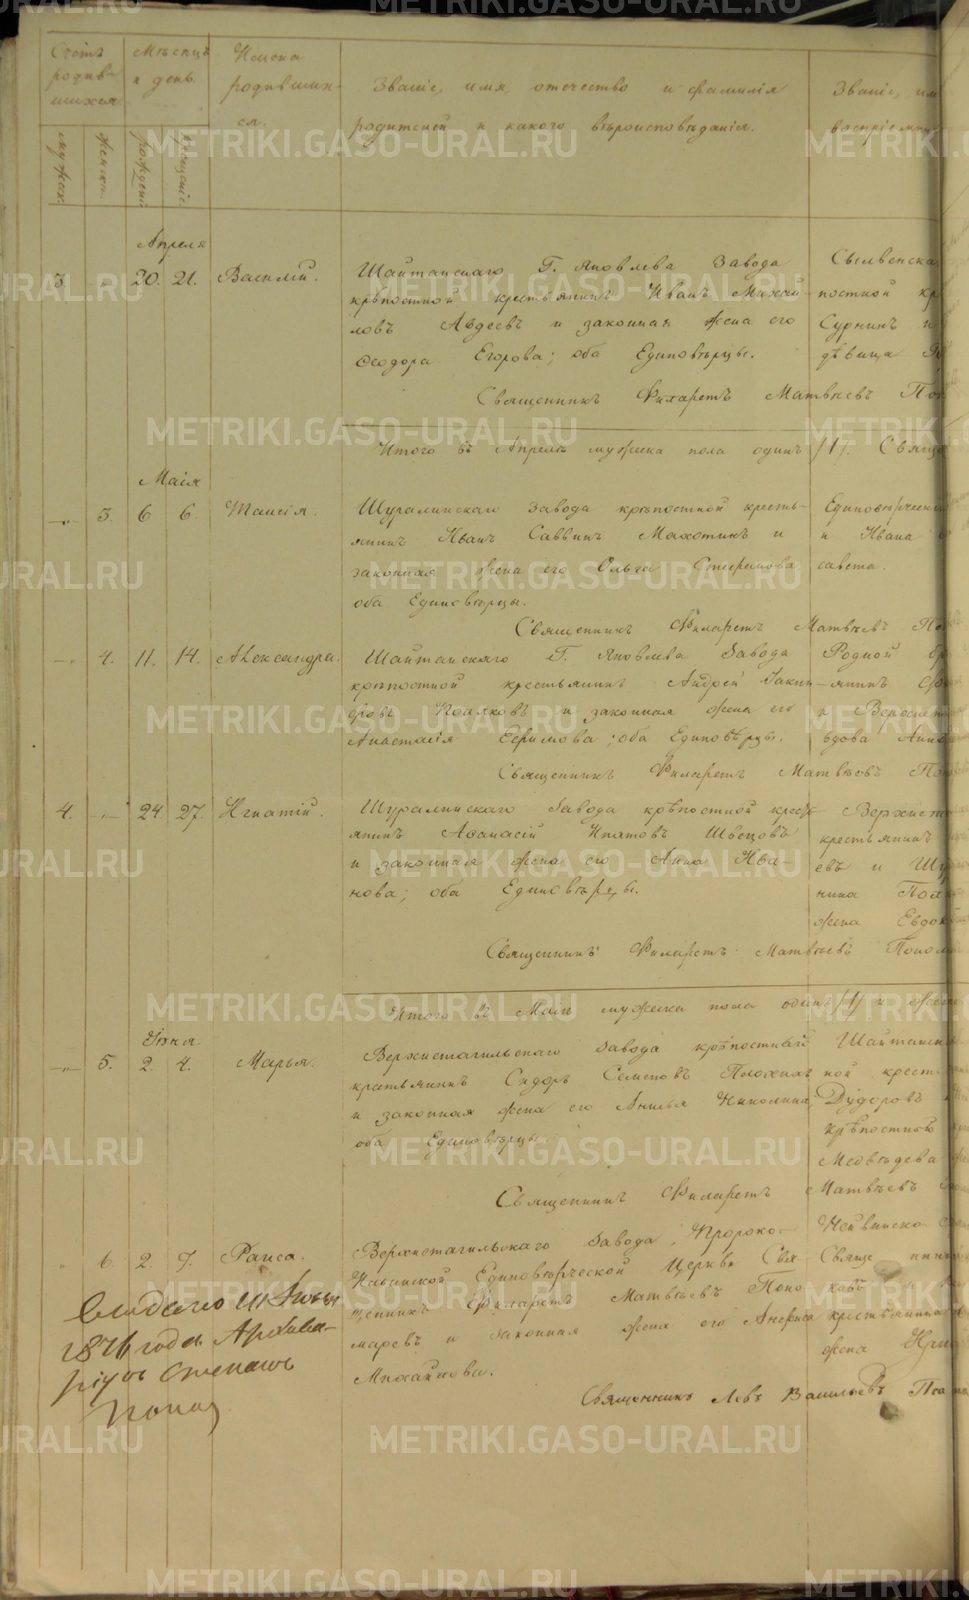 METRIKI.GASO-URAL.RU
Счетъ родив-шихся.
Мѣсяцъ и день.
Имена родивших-ся.
Званіе, имя, отечество и фамилія
родителей и какого вѣроисповѣданія.
Званіе, им
воспріемни
мужск.
женск.
рожденія
крещеніе.
Апреля
3. 20. 21. Василій.
Шайтанскаго Г. Яковлева завода
крѣпостной крестьянинъ Иванъ Михай-
ловъ Авдеевъ и законная жена его
Ѳеодора Егорова; оба Единовѣрцы.
Священникъ Филаретъ Матвѣевъ По
Сылвенска
постной кр
Сурнинъ и
дѣвица
Итого въ Апрелѣ мужска пола одинъ /1/. Свящ
Маія
3. 6 6. Таисія.
Шуралинскаго завода крѣпостной кресть-
янинъ Иванъ Саввинъ Махотинъ и
законная жена его Ольга Стефанова
оба Единовѣрцы.
Священникъ Филаретъ Матвѣевъ По
Единовѣрческ
и Ивана
савета.
4. 11. 14. Александра.
Шайтанскаго Г. Яковлева завода
крѣпостной крестьянинъ Андрей Іакин-
ѳовъ Поляковъ и законная жена его
Анастасія Ефимова; оба Единовѣрцы.
Священникъ Филаретъ Матвѣевъ По
Родной
янинъ
и Верхнета
вдова Анна
4. 24. 27. Игнатій.
Шуралинскаго завода крѣпостной крест
янинъ Аѳанасій Ипатовъ Швецовъ
и законная жена его Анна Ива-
нова; оба Единовѣрцы.
Священникъ Филаретъ Матвѣевъ Поном
Верхнета
крестьянинъ
евъ и Шу
нина Пол
жена Евдок
Итого въ Маіѣ мужска пола одинъ /1/ и женс
Іюня
5. 2. 4. Марья.
Верхнетагильскаго завода крѣпостный
крестьянинъ Сидоръ Семеновъ Плохихъ
и законная жена его Анисья Николина,
оба Единовѣрцы.
Священникъ Филаретъ Матвѣевъ
Шайтанск
ной крест
Дудоровъ
крѣпостной
Медвѣдева
6. 2. 7. Раиса.
Верхнетагильскаго завода, Пророко-
Ильинской Единовѣрческой Церкви Свя-
щенникъ Филаретъ Матвѣевъ Поно-
маревъ и законная жена его Анфиса
Михайлова.
Священникъ Левъ Васильевъ
Невьянско
Священни
ковъ и
крестьянина
жена
Выдано
1876 года Архива-
ріусъ Степанъ
Попов